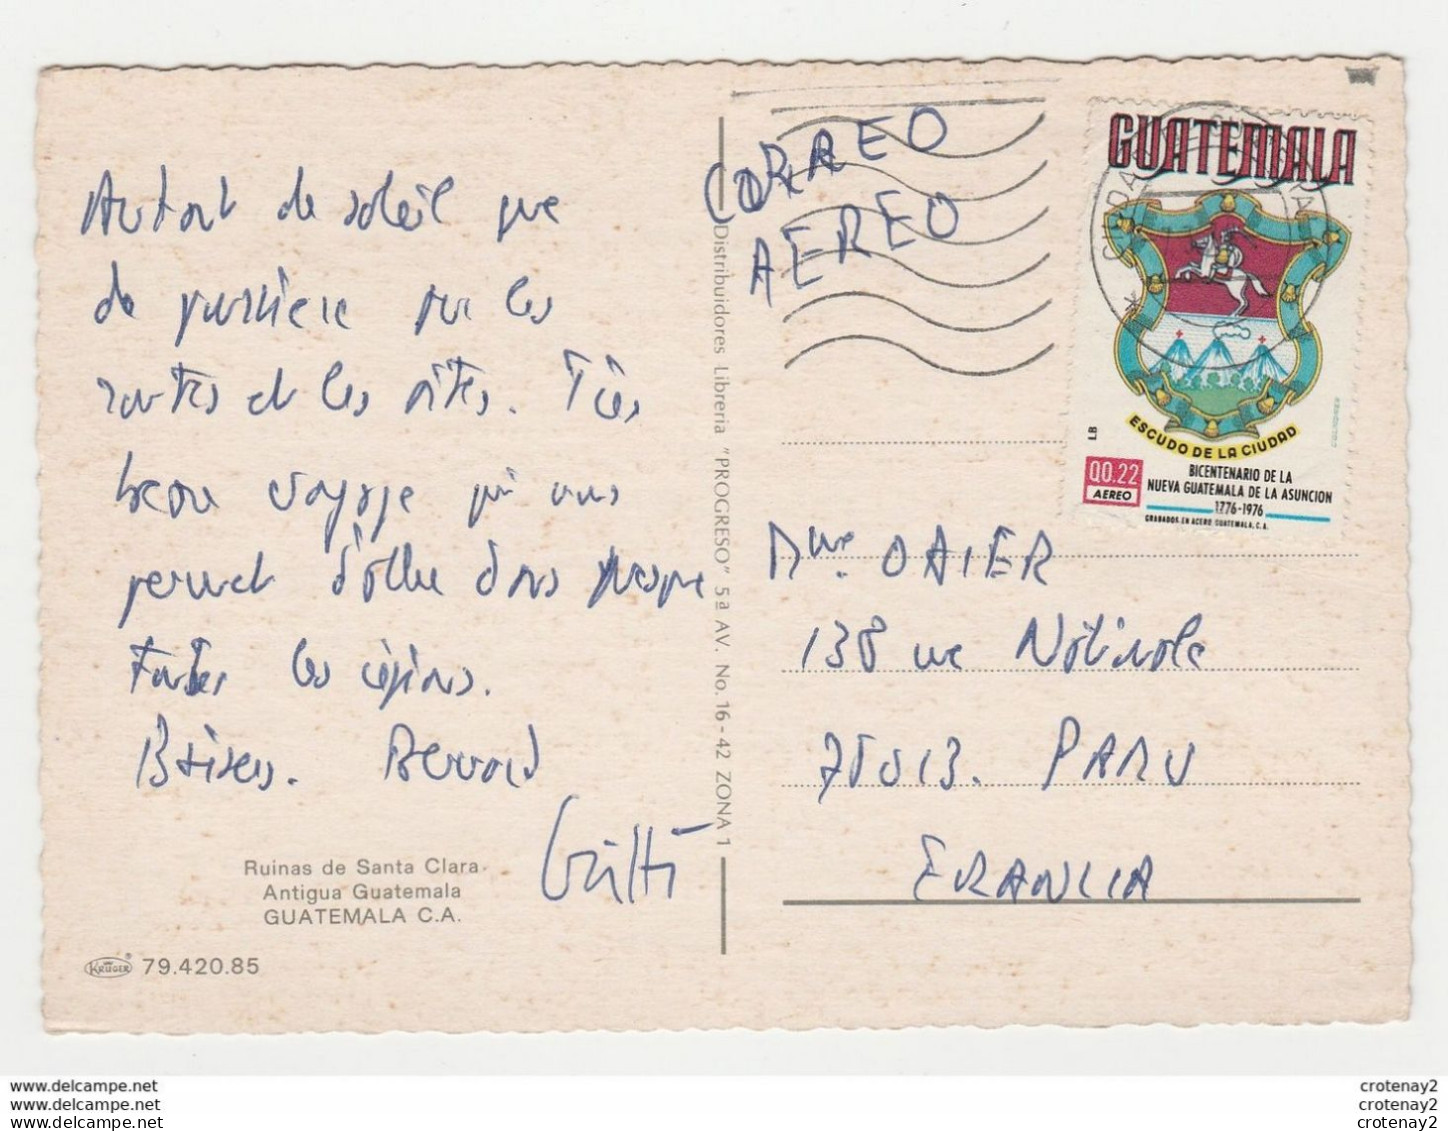 Autant de soleil que
de poussière sur les
routes et les sites. Très
beau voyage qui nous
permet d'aller dans presque
toutes les régions.
Baisers. Bernard
Ruinas de Santa Clara
Antigua Guatemala
GUATEMALA C.A.
KRÜGER 79.420.85
Distribuidores Libreria "PROGRESO" 5a AV. No. 16-42 ZONA 1
CORREO
AEREO
GUATEMALA
ESCUDO DE LA CIUDAD
LB
Q0.22
AEREO
BICENTENARIO DE LA
NUEVA GUATEMALA DE LA ASUNCION
1776-1976
GRABADOS EN ACERO GUATEMALA, C.A.
Mme
138 rue
75013. PARIS
FRANCIA
www.delcampe.net
www.delcampe.net
www.delcampe.net
crotenay2
crotenay2
crotenay2